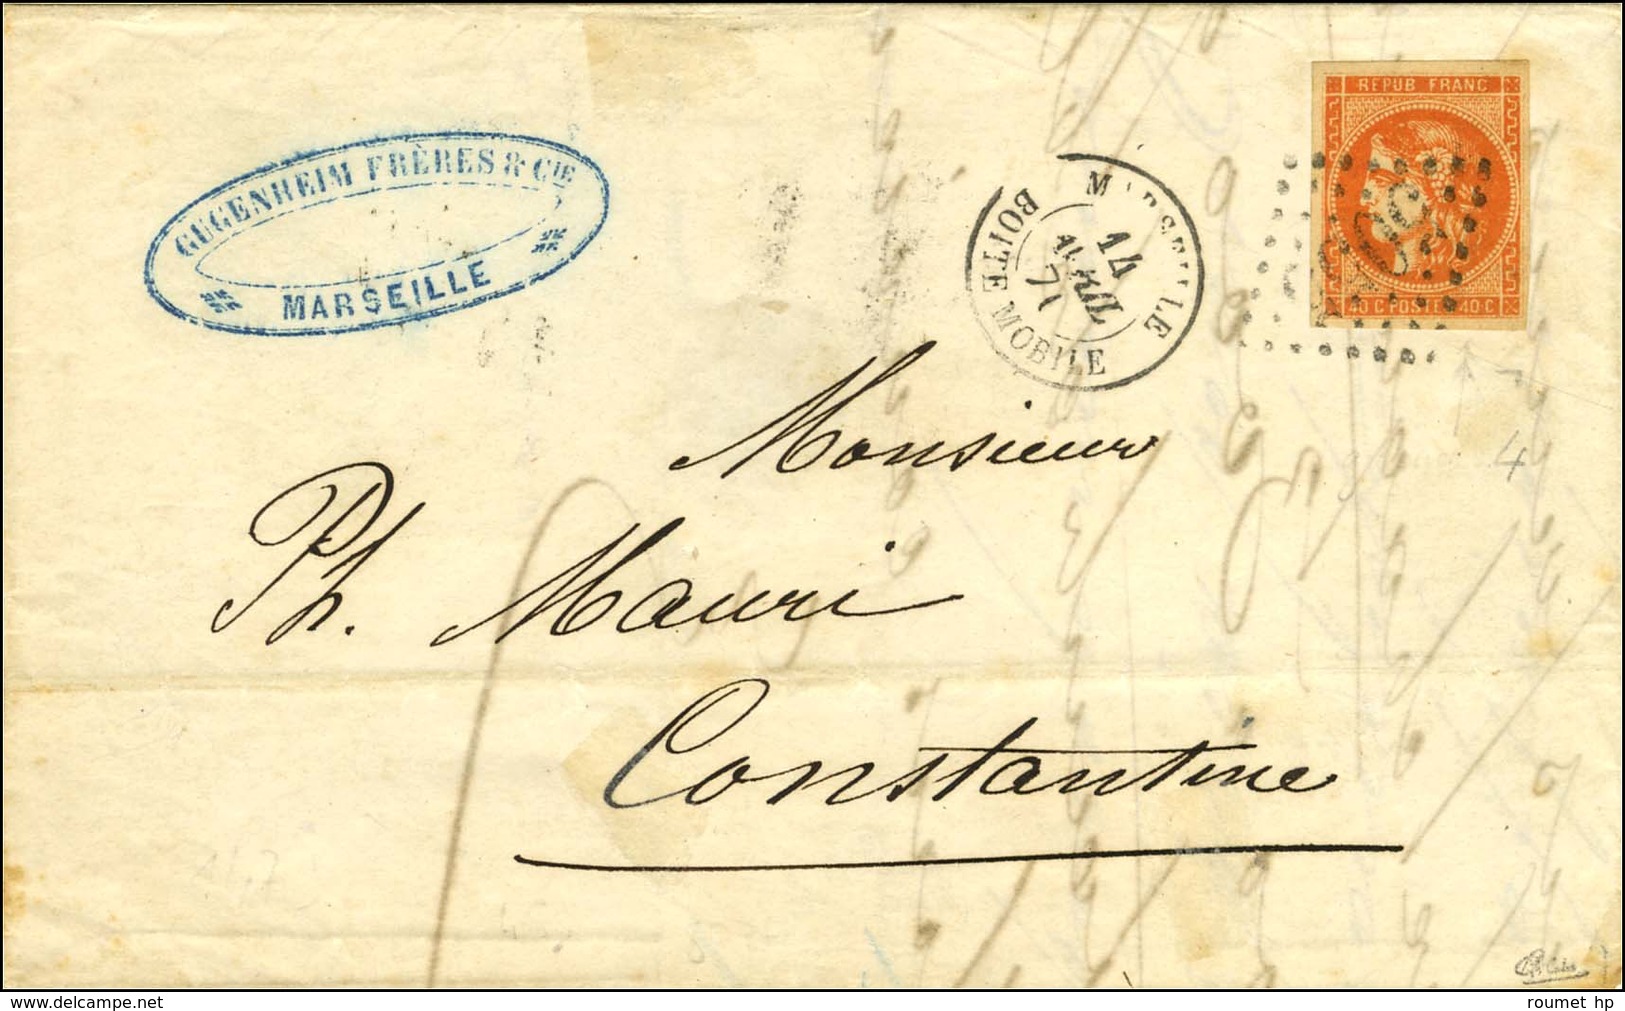 GUGENHEIM FRÈRES & CIE
MARSEILLE
MARSEILLE
14
AVRIL
71
BOITE MOBILE
REPUB FRANC
40 C POSTE 40 C
4
Monsieur
Ph. Mauri
Constantine
www.delcampe.net
roumet hp